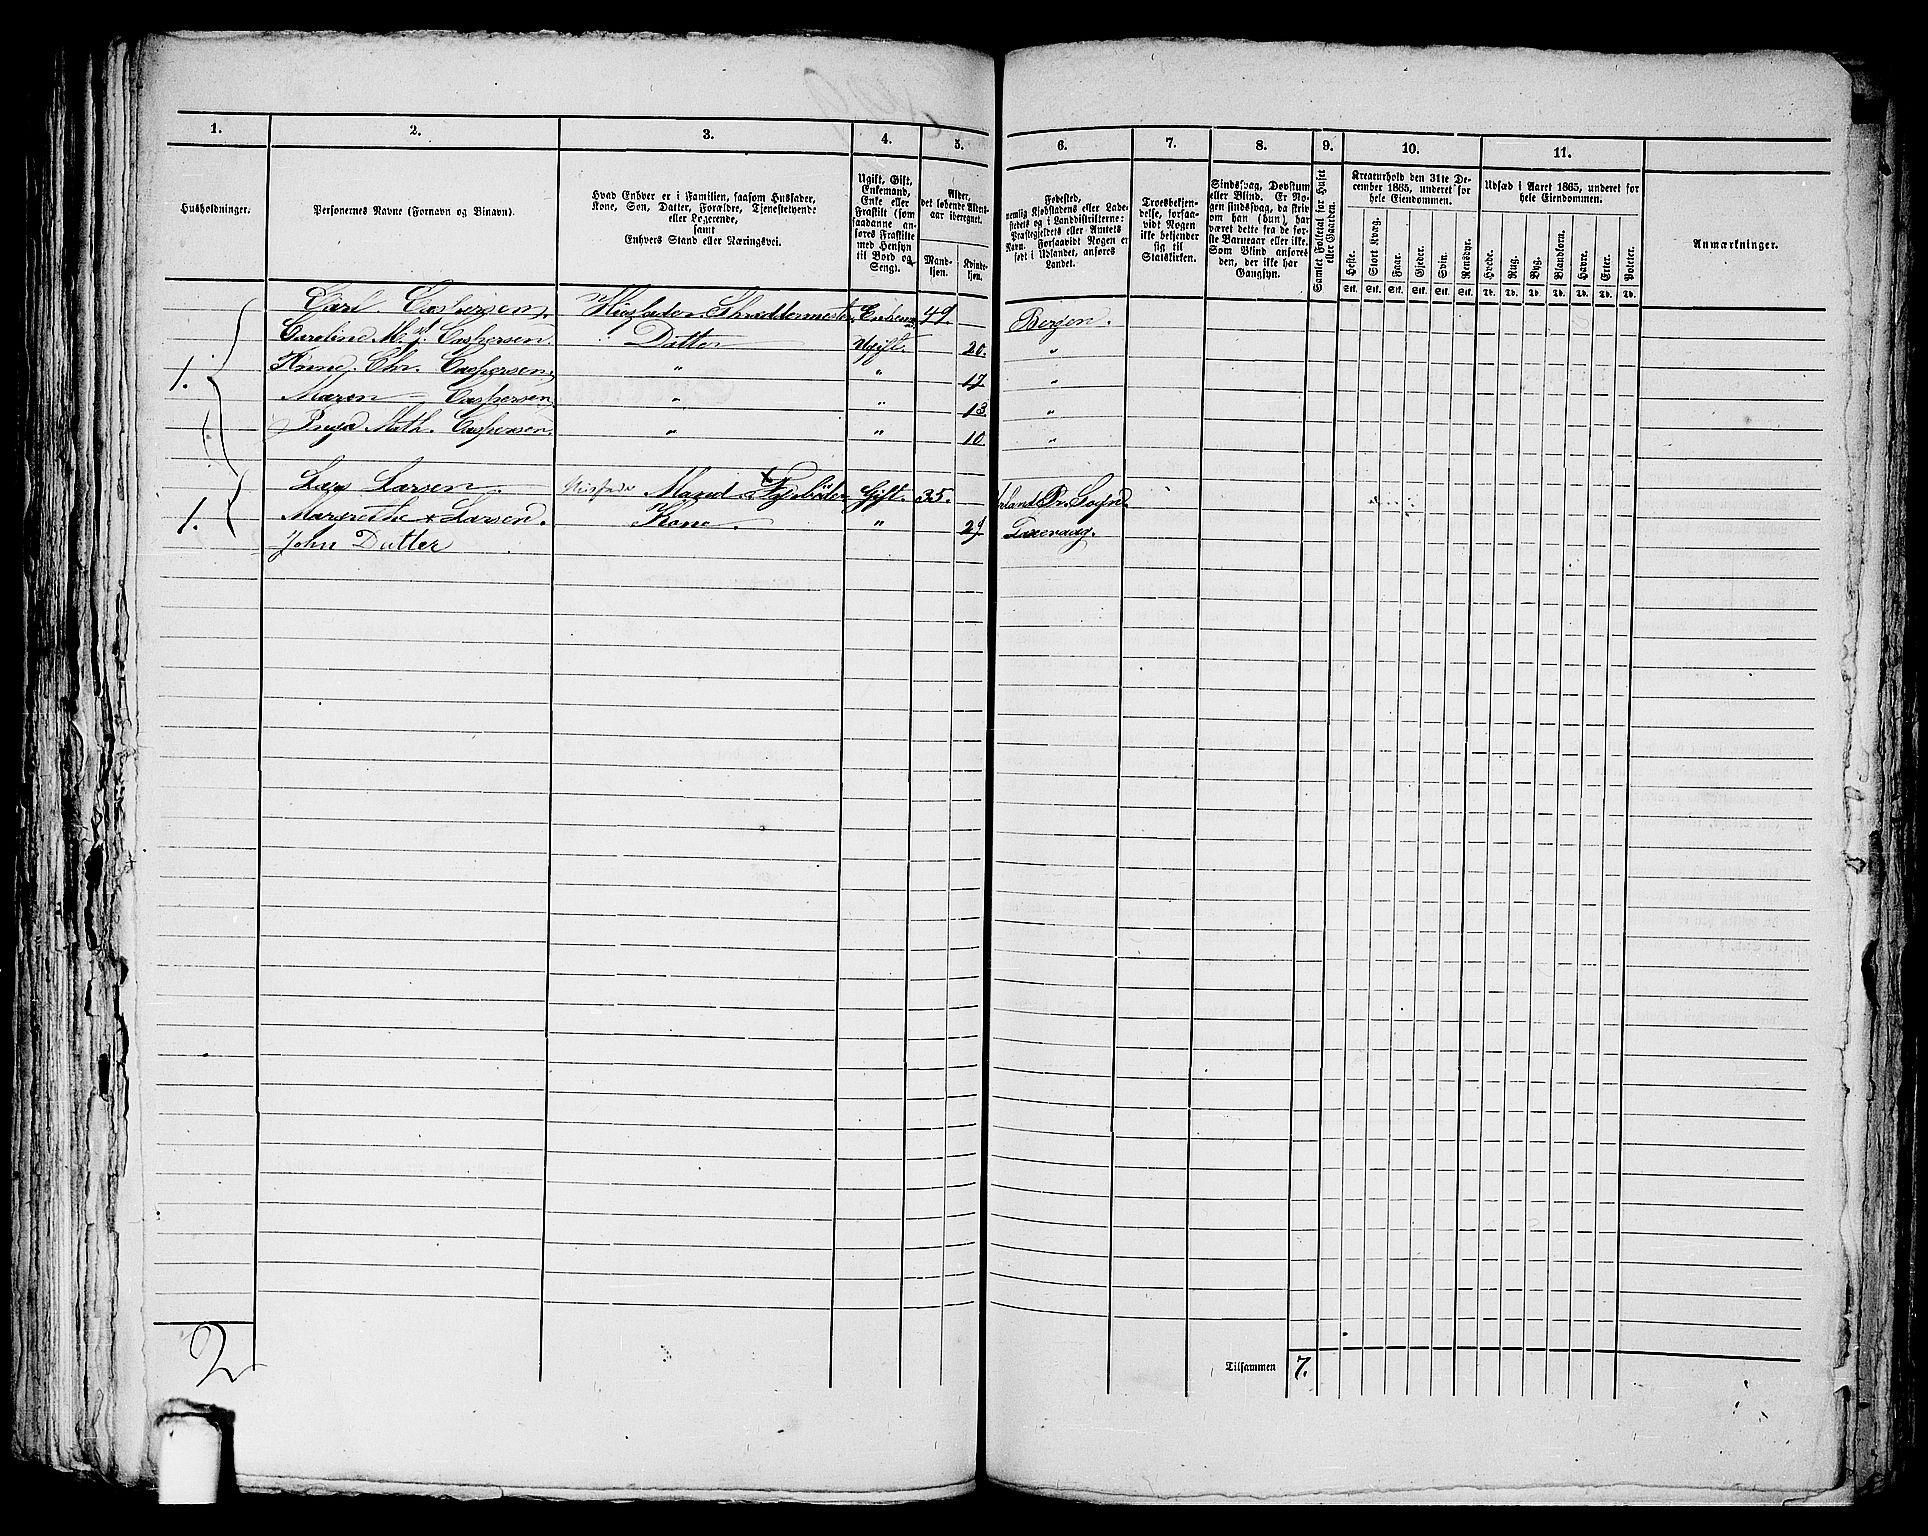 1. 2. 3. 4. 5. 6. 7. 8. 9. 10. 11.
Husholdninger.
Personernes Navne (Fornavn og Binavn).
Hvad Enhver er i Familien, saasom Husfader,
Kone, Søn, Datter, Forældre, Tjenestetyende
eller Logerende,
samt
Enhvers Stand eller Næringsvei.
Ugift, Gift,
Enkemand,
Enke eller
Fraskilt (som
saadanne an-
føres Fraskilte
med Hensyn
til Bord og
Seng).
Alder,
det løbende Alders-
aar iberegnet.
Mand-
kjøn.
Kvinde-
kjøn.
Fødested,
nemlig Kjøbstadens eller Lade-
stedets og i Landdistrikterne:
Præstegjeldets eller Amtets
Navn. Forsaavidt Nogen er
født i Udlandet, anføres
Landet.
Troesbekjen-
delse, forsaa-
vidt Nogen
ikke bekjender
sig til
Statskirken.
Sindssvag, Døvstum
eller Blind. Er No-
gen sindssvag, da skriv
om han (hun) har
været dette fra de før-
ste Barneaar eller ikke.
Som Blind anføres
den, der ikke har
Gangsyn.
Samlet Folketal for Huset
eller Gaarden.
Kreaturhold den 31te De-
cember 1865, underet for
hele Eiendommen.
Heste. Stort Kvæg. Faar. Gjeder. Svin. Rensdyr.
Stk. Stk. Stk. Stk. Stk. Stk.
Udsæd i Aaret 1865, underet for
hele Eiendommen.
Hvede. Rug. Byg. Blandkorn. Havre. Erter. Poteter.
Td. Td. Td. Td. Td. Td. Td.
Anmærkninger.
Carl Caspersen. Husfader. Enkem 49. Bergen.
Caroline M. Caspersen. Datter Ugift. 20. "
1. Anne. Chr. Caspersen. " " 17 "
Maren Caspersen " " 13. "
Inga Math. Caspersen. " " 10. "
Lars Larsen. Husfader Mand Gift. 35.
1. Margrethe Larsen. Kone. " 29
John Datter
2
Tilsammen 7.